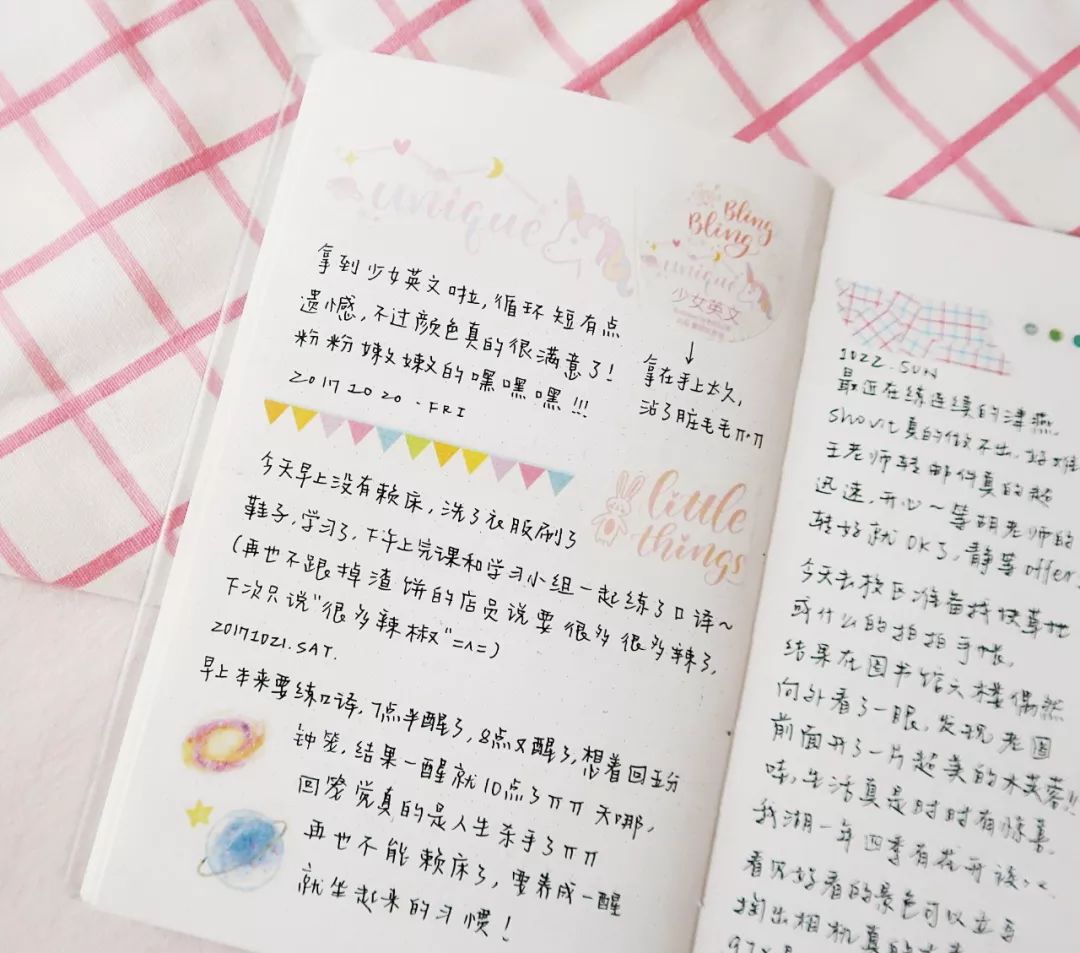 unique
Bling
Bling
unique
少女英文
拿到少女英文啦，循环短有点
遗憾，不过颜色真的很满意了！
粉粉嫩嫩的嘿嘿嘿!!!
20171020.FRI
拿在手上太久，
沾了脏毛毛π.π
little
things
今天早上没有赖床，洗了衣服刷了
鞋子，学习了，下午上完课和学习小组一起练了口译～
(再也不跟掉渣饼的店员说要很多很多辣了，
下次只说"很多辣椒"=∧=)
20171021.SAT.
早上本来要练口译，7点半醒了，8点又醒了，想着回五分
钟笼，结果一醒就10点了ππ 天哪，
回笼觉真的是人生杀手了ππ
再也不能赖床了，要养成一醒
就坐起来的习惯！
1022.SUN
最近在练连续的津燕
shout真的做不出，好难
王老师转邮件真的超
迅速，开心～等胡老师的
转好就OK了，静等offer
今天去校区准备找快草地
或什么的拍拍手帐，
结果在图书馆六楼偶然
向外看了一眼，发现老图
前面开了一片超美的木芙蓉!!
哇，生活真是时时有惊喜，
我湖一年四季有花开诶
看见好看的景色可以立马
掏出相机真的